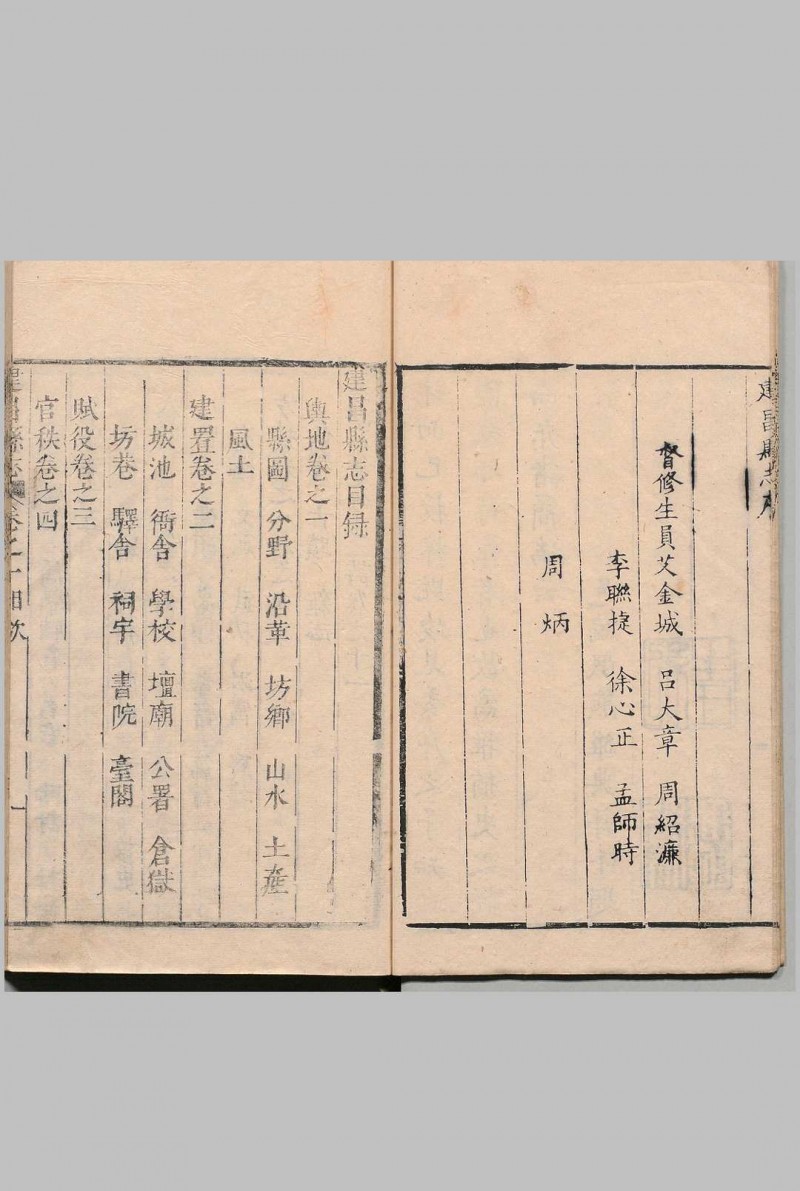 建昌縣志序
督修生員艾金城 呂大章 周紹濂
李聯捷 徐心正 孟師時
周炳
建昌縣志目録
輿地卷之一
縣圖 分野 沿革 坊鄉 山水 土產
風土
建置卷之二
城池 衙舍 學校 壇廟 公署 倉獄
坊巷 驛舍 祠宇 書院 臺閣
賦役卷之三
官秩卷之四
建昌縣志 卷之一目次 一